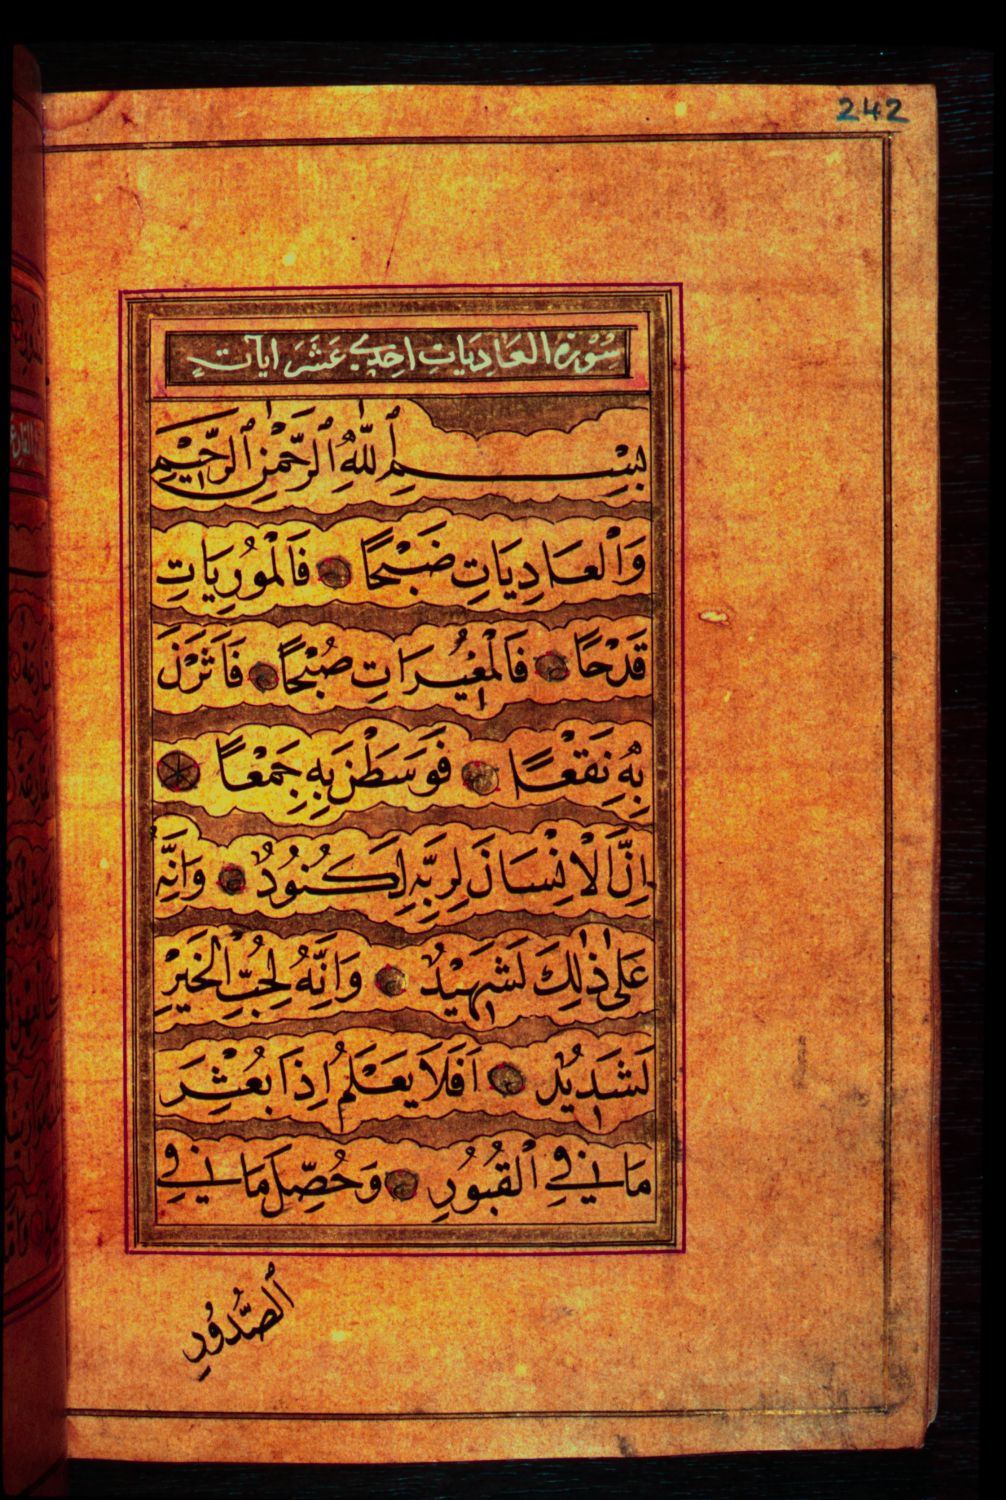 242
سُوْرَة العَادِيَاتِ اِحْدٰى عَشَرَ اٰيَاتٍ
بِسْمِ ٱللّٰهِ ٱلرَّحْمٰنِ ٱلرَّحِيْمِ
وَٱلْعَادِيَاتِ ضَبْحًا فَالْمُوْرِيَاتِ
قَدْحًا فَالْمُغِيْرَاتِ صُبْحًا فَاَثَرْنَ
بِهٖ نَقْعًا فَوَسَطْنَ بِهٖ جَمْعًا
اِنَّ الْاِنْسَانَ لِرَبِّهٖ لَكَنُوْدٌ وَاِنَّهٗ
عَلٰى ذٰلِكَ لَشَهِيْدٌ وَاِنَّهٗ لِحُبِّ الْخَيْرِ
لَشَدِيْدٌ اَفَلَا يَعْلَمُ اِذَا بُعْثِرَ
مَا فِي ٱلْقُبُوْرِ وَحُصِّلَ مَا فِي
ٱلصُّدُوْرِ